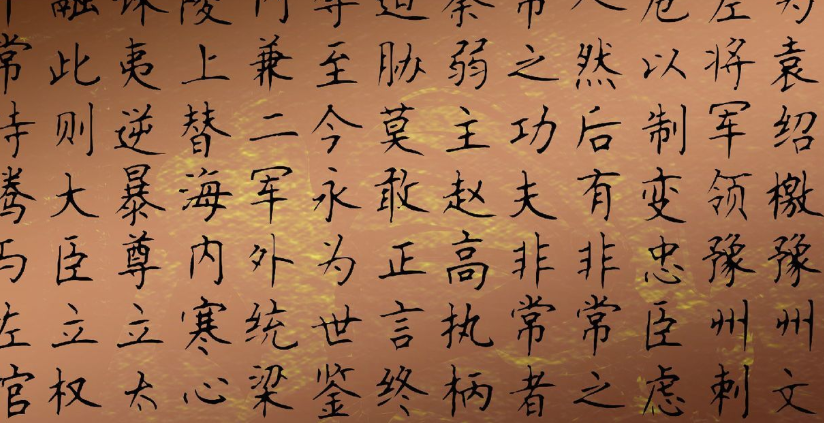 为袁绍檄豫州文
左将军领豫州刺
危以制变忠臣虑
人然后有非常之
常之功夫非常者
秦弱主赵高执柄
迫胁莫敢正言终
辱至今永为世鉴
门兼二军外统梁
陵上替海内寒心
诛夷逆暴尊立太
融此则大臣立权
常侍腾与左官